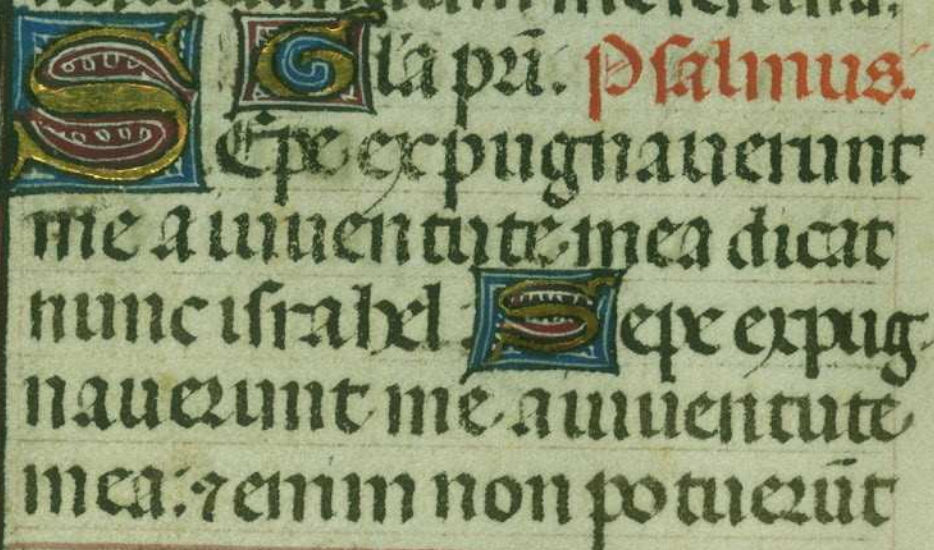 Gla pri̅. Psalmus.
SEpe expugnauerunt
me a iuuentute mea dicat
nunc israhel Sepe expug
nauerunt me a iuuentute
mea: ⁊ enim non potueru̅t